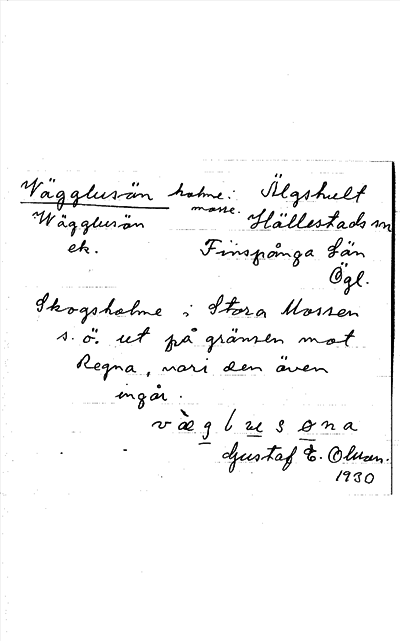 Wägglusön holme i Älgshult
mosse.
Wägglusön Hällestads sn
ek. Finspånga län
Ögl.
Skogsholme i Stora Mossen
s. ö. ut på gränsen mot
Regna, vari den även
ingår.
v æ̀ g l u s ø n a
Gustaf E. Olsson.
1930